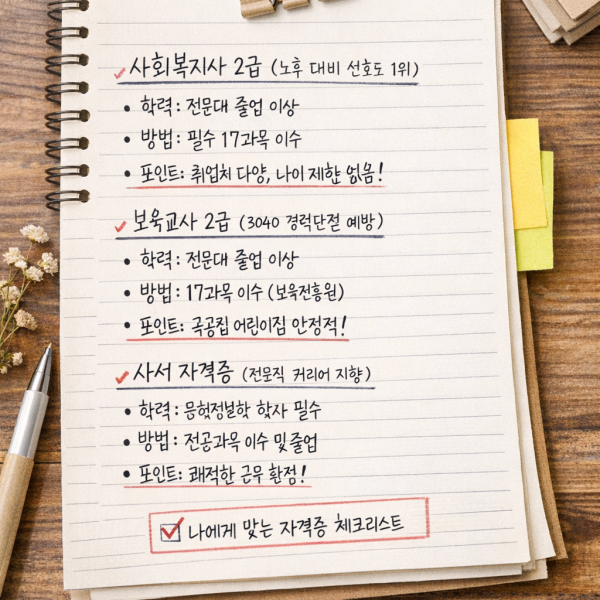 사회복지사 2급 (노후 대비 선호도 1위)
• 학력: 전문대 졸업 이상
• 방법: 필수 17과목 이수
• 포인트: 취업처 다양, 나이 제한 없음!
보육교사 2급 (3040 경력단절 예방)
• 학력: 전문대 졸업 이상
• 방법: 17과목 이수
• 포인트: 어린이집 안정적!
사서 자격증 (전문직 커리어 지향)
• 학력: 학사 필수
• 방법: 전공과목 이수 및 졸업
• 포인트: 쾌적한 근무 환경!
나에게 맞는 자격증 체크리스트